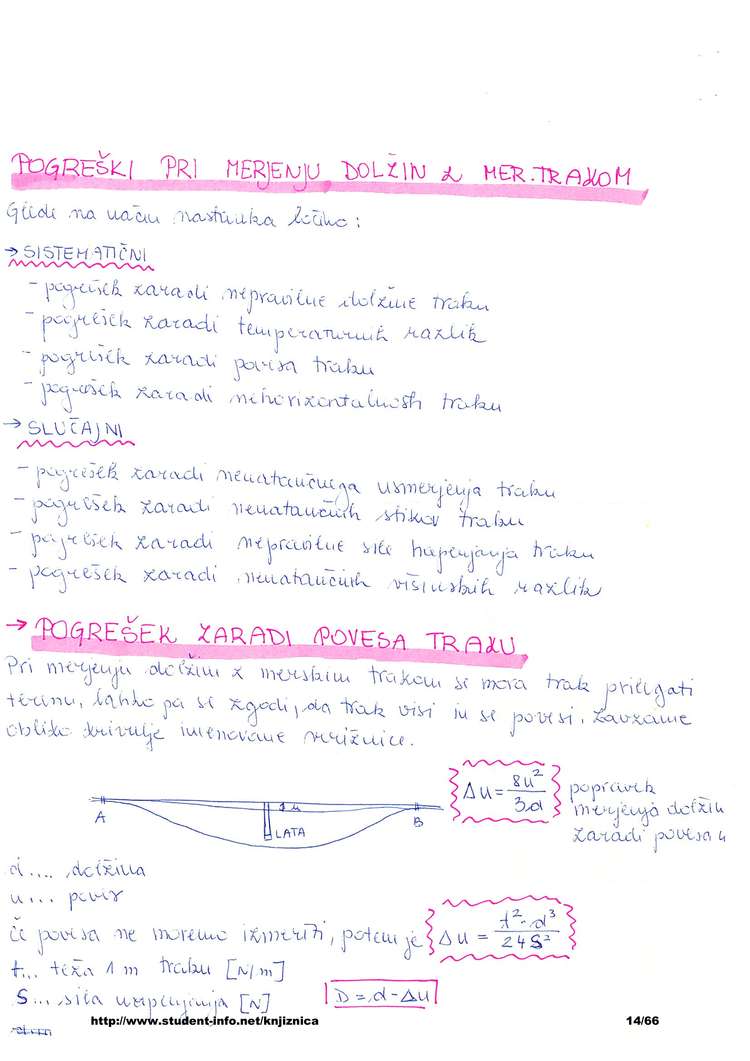 POGREŠKI PRI MERJENJU DOLŽIN Z MER. TRAKOM
Glede na način nastanka ločimo:
→ SISTEMATIČNI
- pogrešek zaradi nepravilne dolžine traku
- pogrešek zaradi temperaturnih razlik
- pogrešek zaradi povesa traku
- pogrešek zaradi nehorizontalnosti traku
→ SLUČAJNI
- pogrešek zaradi nenatančnega usmerjenja traku
- pogrešek zaradi nenatančnih stikov traku
- pogrešek zaradi nepravilne sile napenjanja traku
- pogrešek zaradi nenatančnih višinskih razlik
→ POGREŠEK ZARADI POVESA TRAKU
Pri merjenju dolžin z merskim trakom se mora trak prilegati
terenu, lahko pa se zgodi, da trak visi in se povesi, zavzame
obliko krivulje imenovane verižnice.
Δu = 8u²/3d
popravek
merjenja dolžin
zaradi povesa u
A u B
LATA
d .... dolžina
u ... poves
če povesa ne moremo izmeriti, potem je Δu = t²·d³/24S²
t... teža 1 m traku [N/m]
S... sila napenjanja [N] D = d - Δu
http://www.student-info.net/knjiznica 14/66